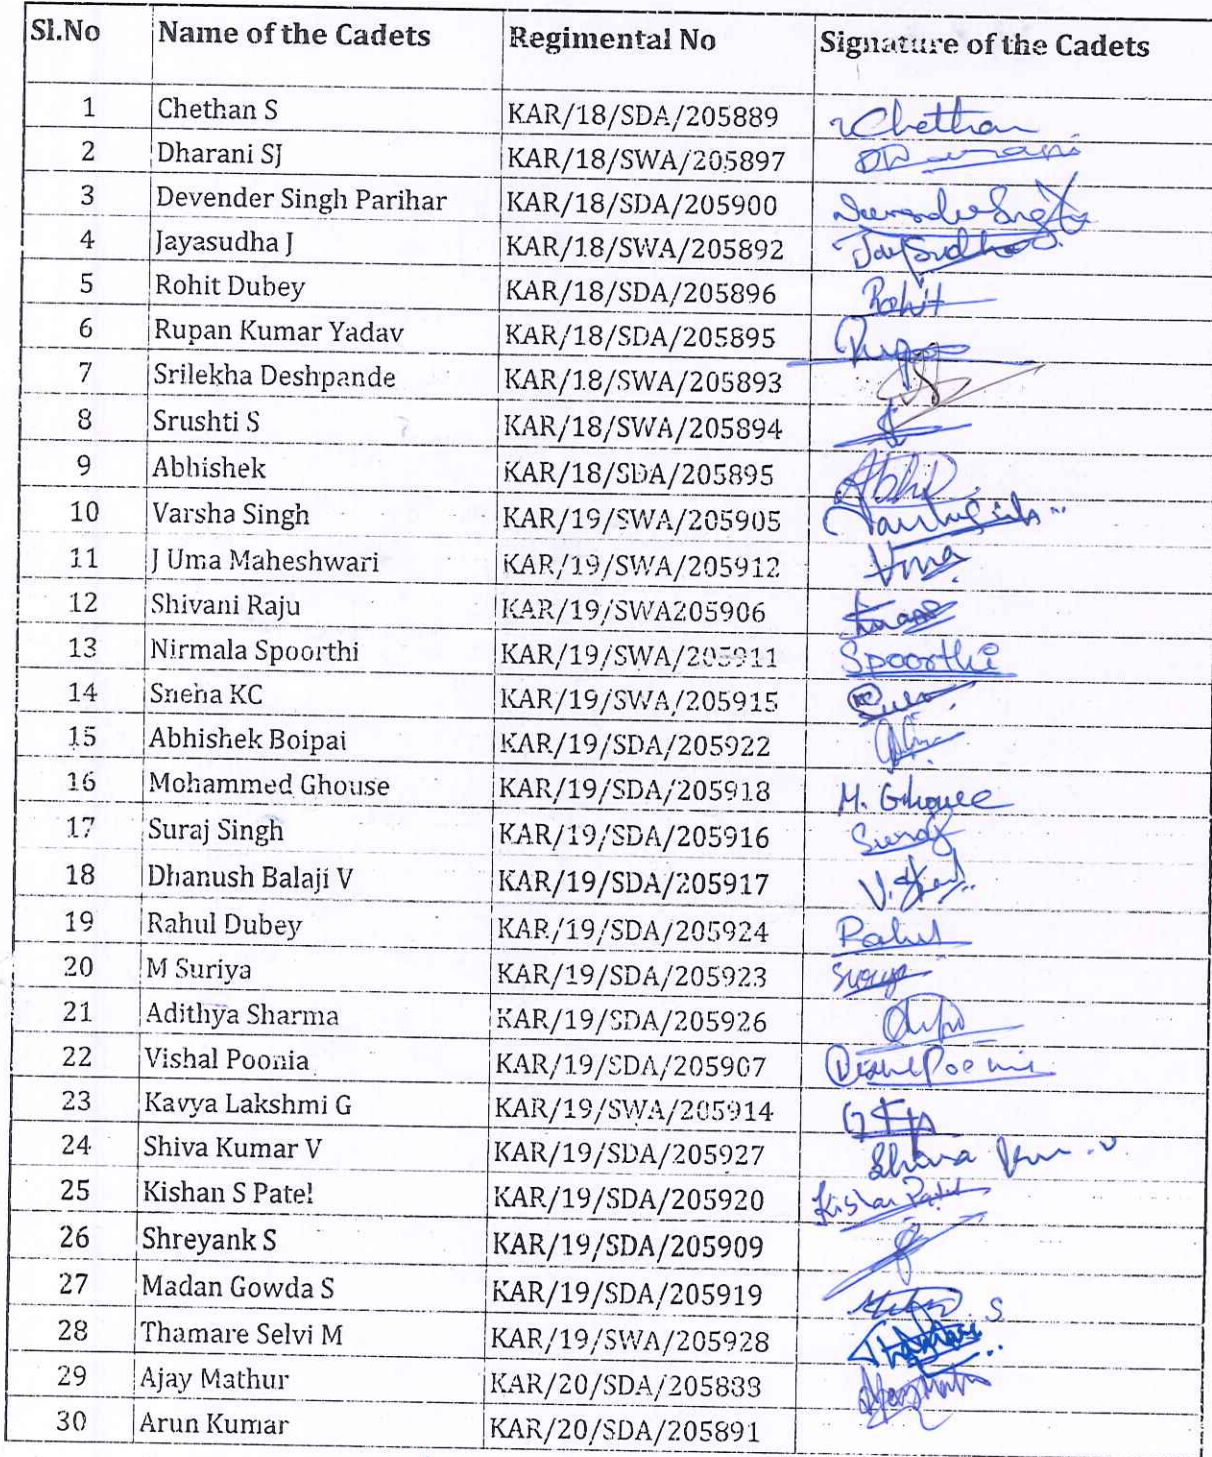 Sl.No Name of the Cadets Regimental No Signature of the Cadets
1 Chethan S KAR/18/SDA/205889 Chethan
2 Dharani SJ KAR/18/SWA/205897
3 Devender Singh Parihar KAR/18/SDA/205900
4 Jayasudha J KAR/18/SWA/205892
5 Rohit Dubey KAR/18/SDA/205896 Rohit
6 Rupan Kumar Yadav KAR/18/SDA/205895
7 Srilekha Deshpande KAR/18/SWA/205893
8 Srushti S KAR/18/SWA/205894
9 Abhishek KAR/18/SDA/205895
10 Varsha Singh KAR/19/SWA/205905
11 J Uma Maheshwari KAR/19/SWA/205912 Uma
12 Shivani Raju KAR/19/SWA205906
13 Nirmala Spoorthi KAR/19/SWA/205911 Spoorthi
14 Sneha KC KAR/19/SWA/205915
15 Abhishek Boipai KAR/19/SDA/205922
16 Mohammed Ghouse KAR/19/SDA/205918 M. Ghouse
17 Suraj Singh KAR/19/SDA/205916 Suraj
18 Dhanush Balaji V KAR/19/SDA/205917
19 Rahul Dubey KAR/19/SDA/205924 Rahul
20 M Suriya KAR/19/SDA/205923
21 Adithya Sharma KAR/19/SDA/205926
22 Vishal Poonia KAR/19/SDA/205907
23 Kavya Lakshmi G KAR/19/SWA/205914
24 Shiva Kumar V KAR/19/SDA/205927
25 Kishan S Patel KAR/19/SDA/205920 Kishan Patel
26 Shreyank S KAR/19/SDA/205909
27 Madan Gowda S KAR/19/SDA/205919
28 Thamare Selvi M KAR/19/SWA/205928
29 Ajay Mathur KAR/20/SDA/205833
30 Arun Kumar KAR/20/SDA/205891